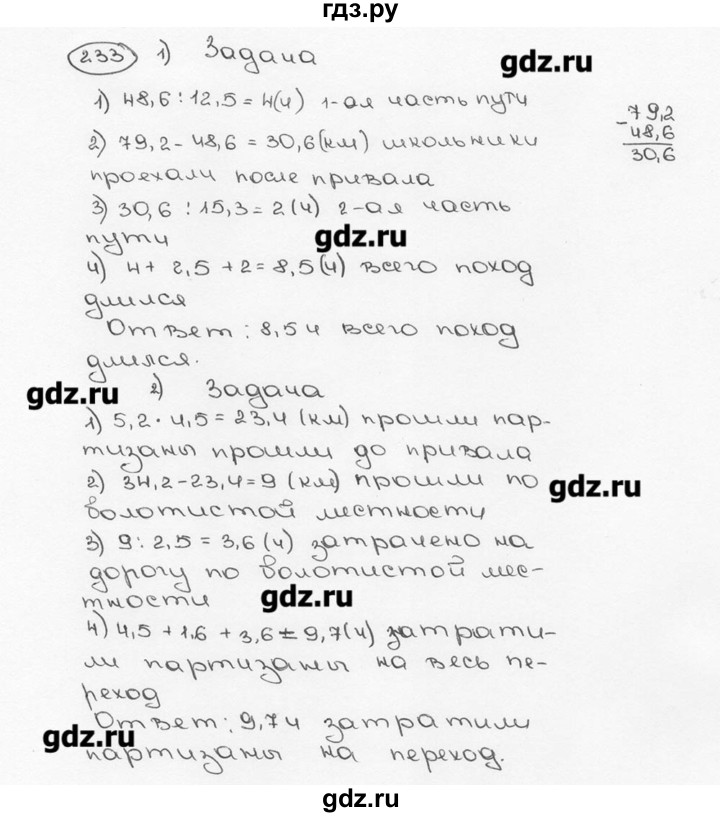 гдз.ру
233 1) Задача
gdz.ru
1) 48,6 : 12,5 = 4(ч) 1-ая часть пути
2) 79,2 - 48,6 = 30,6(км) школьники
проехали после привала
- 79,2
48,6
30,6
3) 30,6 : 15,3 = 2(ч) 2-ая часть
пути
gdz.ru
4) 4 + 2,5 + 2 = 8,5(ч) всего поход
длился
Ответ: 8,5 ч всего поход
длился.
gdz.ru
2) Задача
1) 5,2 · 4,5 = 23,4 (км) прошли пар-
тизаны прошли до привала
2) 34,2-23,4=9 (км) прошли по
gdz.ru
болотистой местности
3) 9 : 2,5 = 3,6 (ч) затрачено на
дорогу по болотистой мес-
тности
gdz.ru
4) 4,5 + 1,6 + 3,6 = 9,7(ч) затрати-
ли партизаны на весь пе-
реход
Ответ: 9,7 ч затратили
gdz.ru
партизаны на переход.
gdz.ru